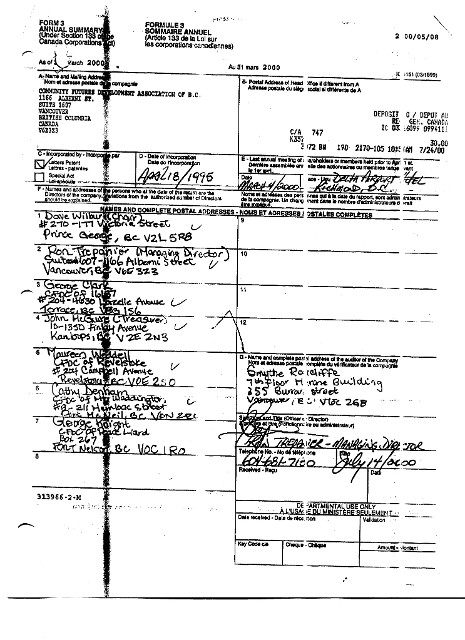 FORM 3
ANNUAL SUMMARY
(Under Section 133 of the
Canada Corporations Act)
FORMULE 3
SOMMAIRE ANNUEL
(Article 133 de la Loi sur
les corporations canadiennes)
2 00/05/08
As of March 2000
Au 31 mars 2000
A- Name and Mailing Address
Nom et adresse postale de la compagnie
COMMUNITY FUTURES DEVELOPMENT ASSOCIATION OF B.C.
1166 ALBERNI ST.
SUITE 1607
VANCOUVER
BRITISH COLUMBIA
CANADA
V6E3Z3
B- Postal Address of Head Office if different from A
Adresse postale du siège social si différente de A
DEPOSIT
GEN. CANADA
C/A 747
30.00
7/24/00
C - Incorporated by - Incorporée par
Letters Patent
Lettres - patentes
Special Act
D - Date of Incorporation
Date de l'incorporation
April 8/1995
E - Last annual meeting of shareholders or members held prior to April 1st.
Date
March 4/2000
Delta Airport Hotel
Richmond, B.C.
F - Names and addresses of the persons who at the date of the return are the
Directors of the company.
NAMES AND COMPLETE POSTAL ADDRESSES - NOMS ET ADRESSES POSTALES COMPLÈTES
1 Dave Wilbur (Chair)
#270-177 Victoria Street
Prince George, BC V2L 5R8
2 Ron Trepanier (Managing Director)
Suite 1607-1166 Alberni Street
Vancouver, BC V6E 3Z3
3 George Clark
CFDC of
#204-4630 Lazelle Avenue
Terrace, BC V8G 1S6
4 John McGuire (Treasurer)
10-1350 Finlay Avenue
Kamloops, BC V2E 2N3
6 Maureen Weddell
CFDC of Revelstoke
#204 Campbell Avenue
Revelstoke, BC V0E 2S0
5 Cathy Denham
CFDC of Mt. Waddington
Street
Port McNeill, BC V0N 2R0
7 George Haight
Box 267
Fort Nelson, BC V0C 1R0
8
9
10
11
12
G - Name and complete postal address of the auditor of the Company
Nom et adresse postale complète du vérificateur de la compagnie
Smythe Ratcliffe
7th Floor Marine Building
355 Burrard Street
Vancouver, BC V6C 2G8
Ron Trepanier - Managing Director
Telephone No. - No de téléphone
604-681-7100
Date
July 14/2000
Received - Reçu
Date
313966-2-M
DEPARTMENTAL USE ONLY
À L'USAGE DU MINISTÈRE SEULEMENT
Date received - Date de réception
Validation
Key Code clé
Cheque - Chèque
Amount - Montant